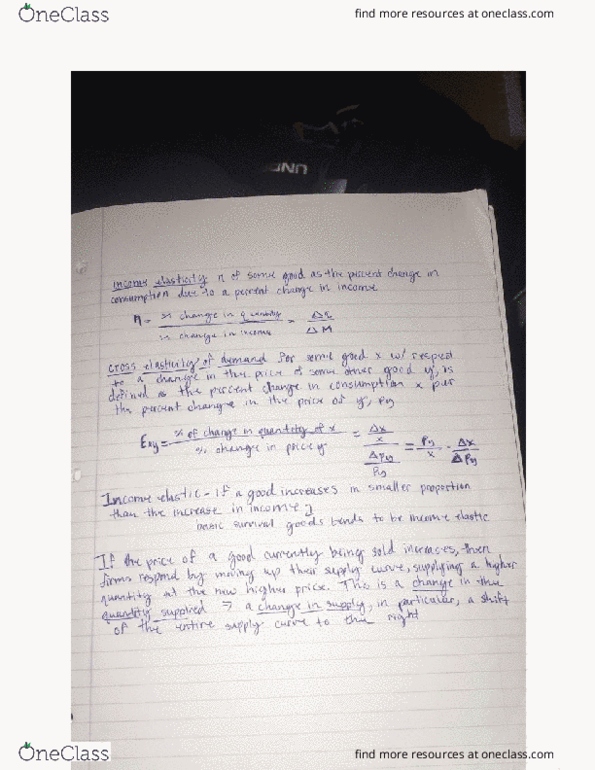 OneClass
find more resources at oneclass.com
UNI
income elasticity η of some good as the percent change in
consumption due to a percent change in income
η = % change in quantity / % change in income = / ΔM
cross elasticity of demand for some good x w/ respect
to a change in the price of some other good y, is
defined as the percent change in consumption x per
the percent change in the price of y, Py
Exy = % of change in quantity of x / % change in price y = Δx/x / ΔPy/Py = Py/x · Δx/ΔPy
Income elastic - if a good increases in smaller proportion
than the increase in income]
basic survival goods tends to be income elastic
If the price of a good currently being sold increases, then
firms respond by moving up their supply curve, supplying a higher
quantity at the new higher price. This is a change in the
quantity supplied ⇒ a change in supply, in particular, a shift
of the entire supply curve to the right
OneClass
find more resources at oneclass.com